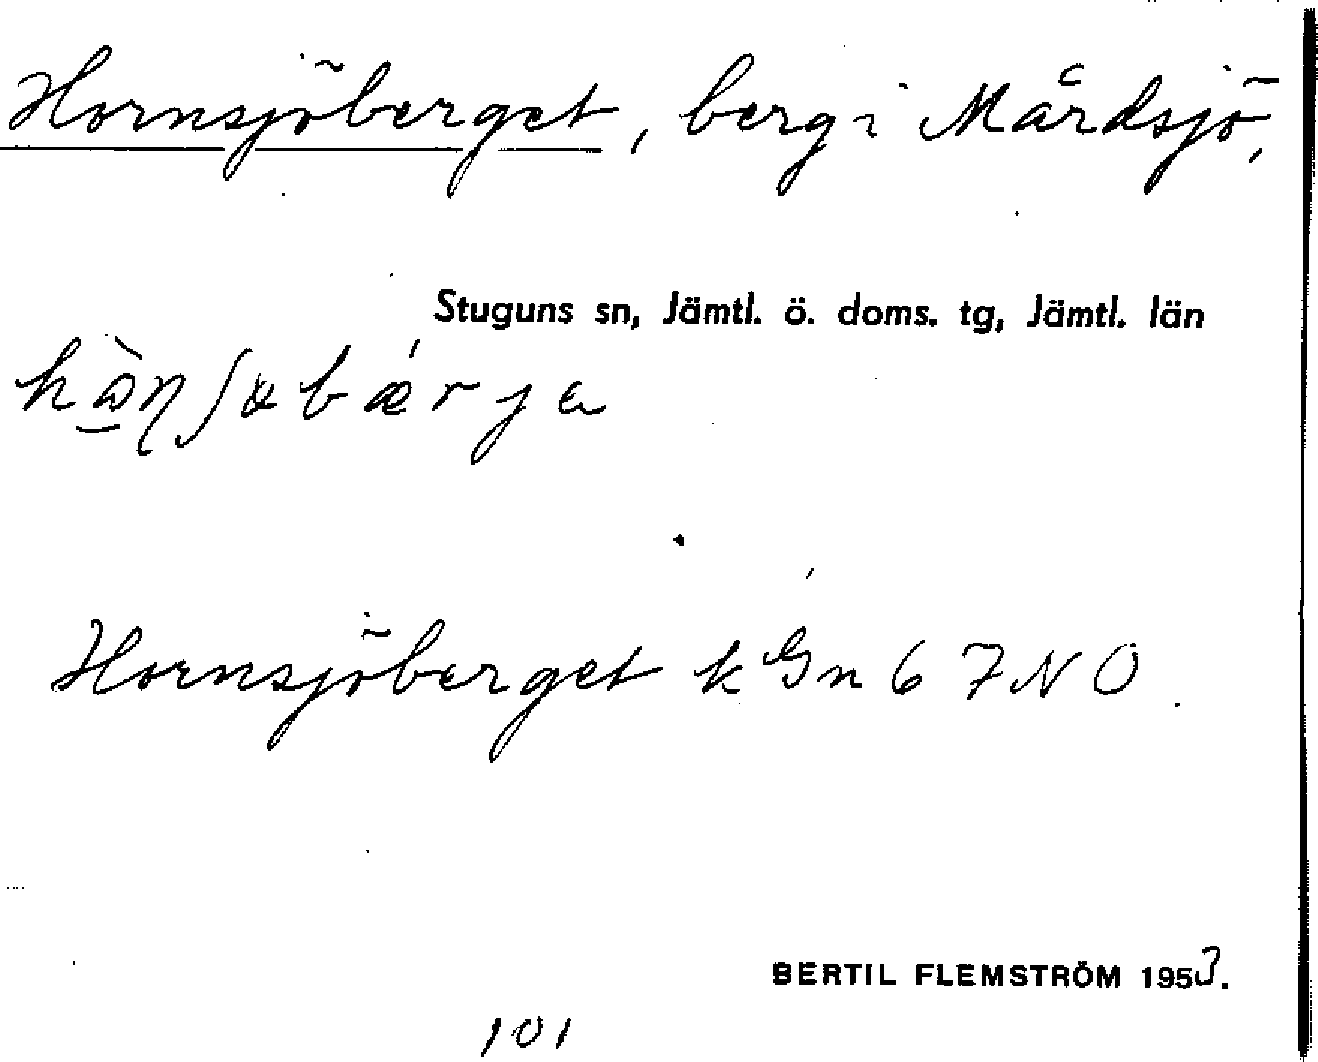 Hornsjöberget, berg i Mårdsjö,
Stuguns sn, Jämtl. ö. doms. tg, Jämtl. län
Hornsjöberget k Gn 67 NO.
BERTIL FLEMSTRÖM 1953.
101